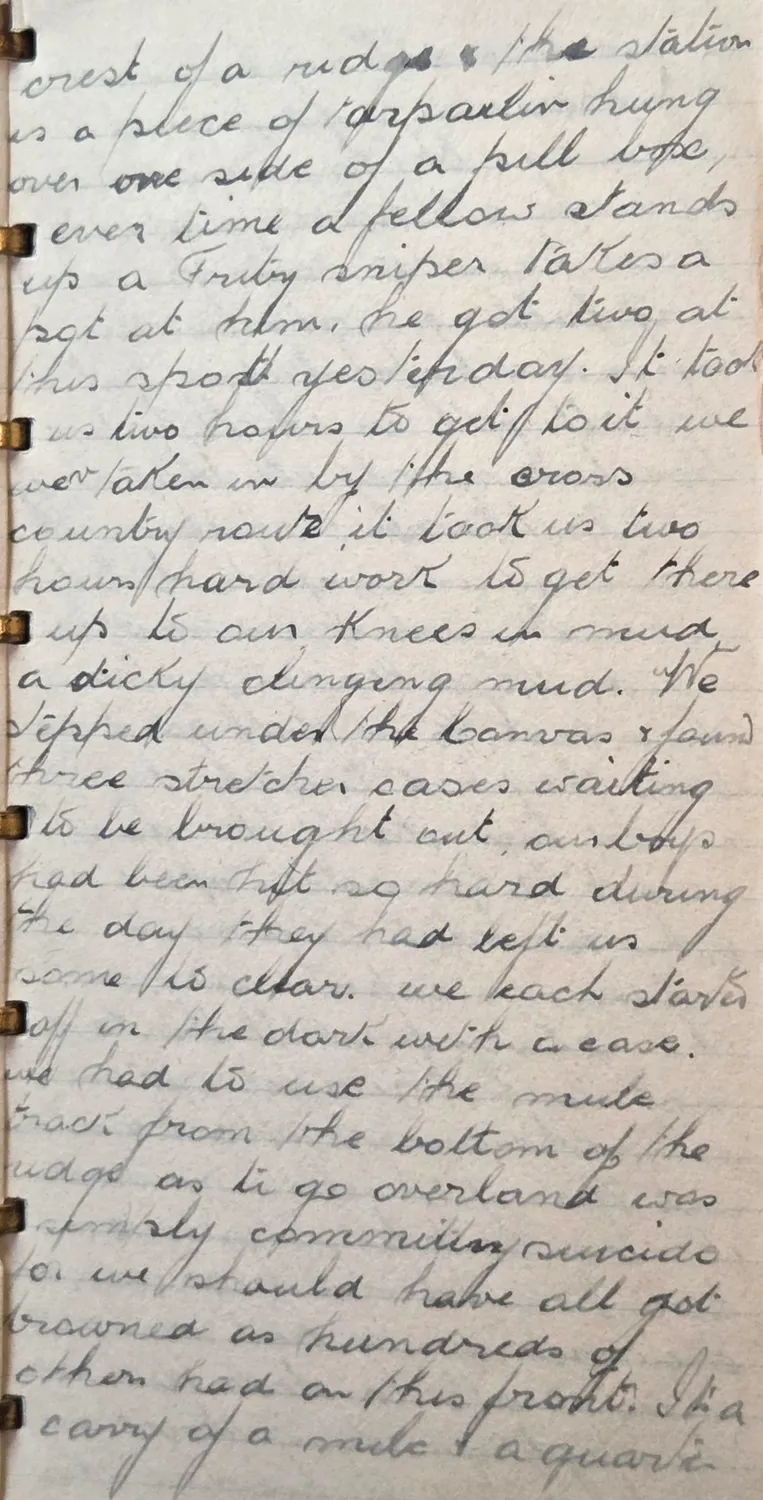 crest of a ridge & the station
is a piece of tarpaulin hung
over one side of a pill box,
ever time a fellow stands
up a Frity sniper takes a
pot at him, he got two at
this spot yesterday. It took
us two hours to get to it we
wer taken in by the cross
country route it took us two
hours hard work to get there
up to our knees in mud,
a sticky clinging mud. We
stepped under the canvas & found
three stretcher cases waiting
to be brought out, our boys
had been hit so hard during
the day they had left us
some to clear. we each started
off in the dark with a case.
we had to use the mule
track from the bottom of the
ridge as to go overland was
simply committing suicide
for we should have all got
drowned as hundreds of
others had on this front. It a
carry of a mile & a quarter